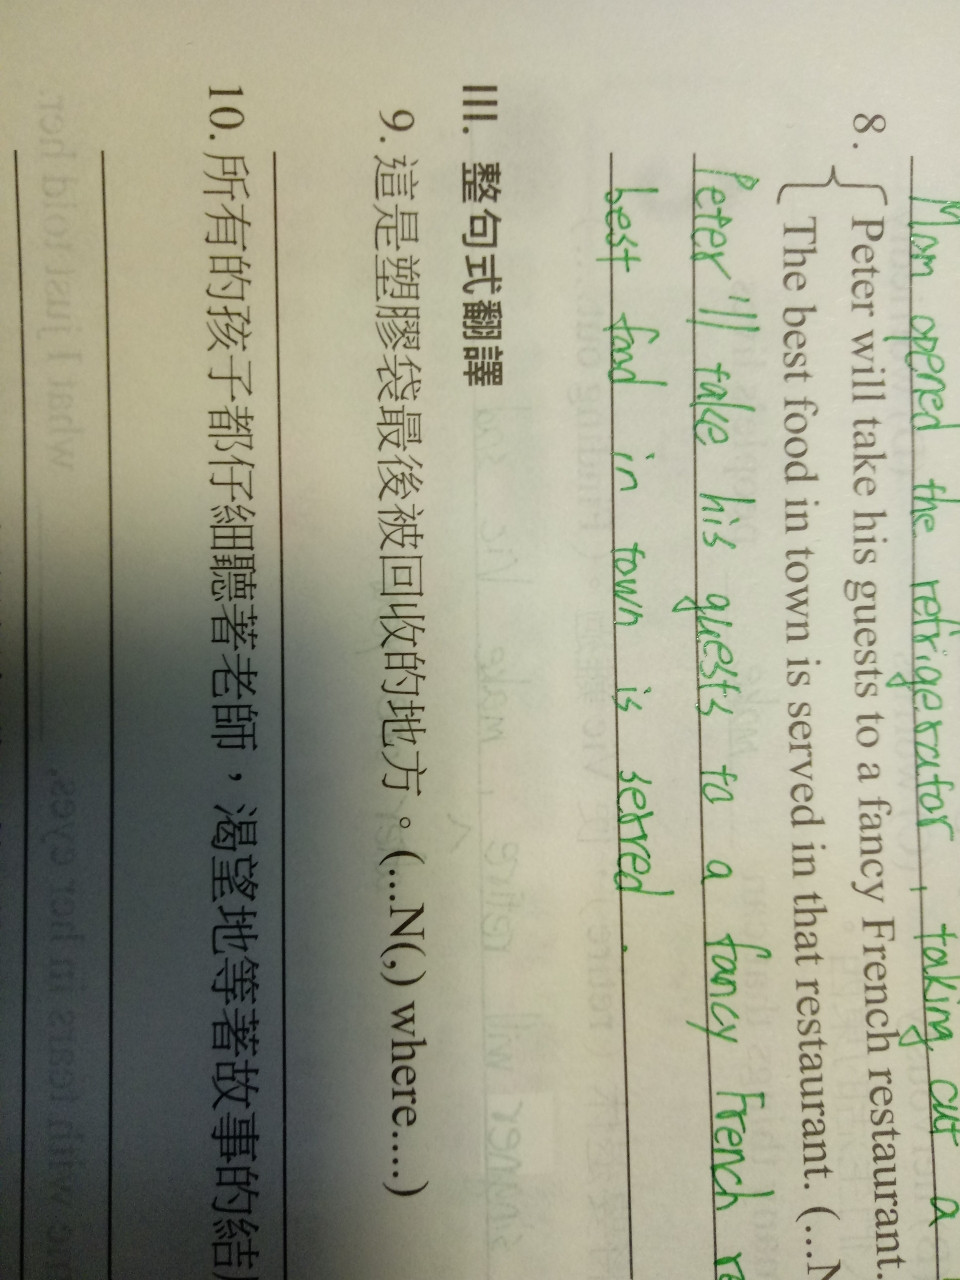 Mom opened the refrigerator, taking out a
8. Peter will take his guests to a fancy French restaurant.
The best food in town is served in that restaurant. (...N
Peter'll take his guests to a fancy French
best food in town is served.
III. 整句式翻譯
9. 這是塑膠袋最後被回收的地方。(...N(,) where....)
10. 所有的孩子都仔細聽著老師，渴望地等著故事的結